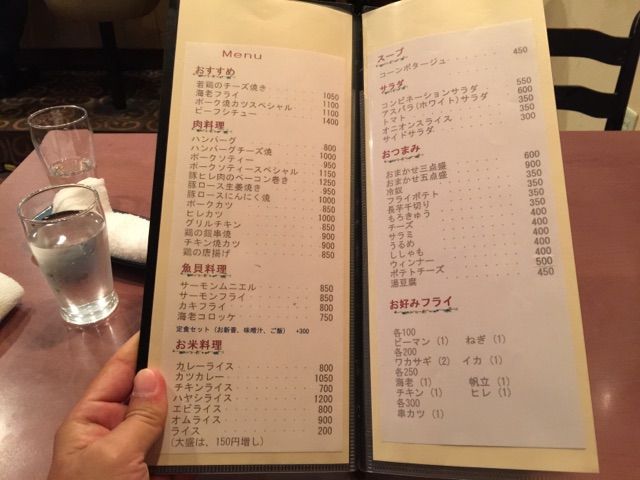 Menu
おすすめ
若鶏のチーズ焼き 1050
海老フライ 1100
ポーク焼カツスペシャル 1100
ビーフシチュー 1400
肉料理
ハンバーグ 800
ハンバーグチーズ焼 1000
ポークソティー 950
ポークソティースペシャル 1150
豚ヒレ肉のベーコン巻き 1250
豚ロース生姜焼き 950
豚ロースにんにく焼
ポークカツ
ヒレカツ 1000
グリルチキン 850
鶏の鎧串焼 900
チキン焼カツ 900
鶏の唐揚げ 800
魚貝料理
サーモンムニエル 850
サーモンフライ 850
カキフライ 800
海老コロッケ 750
定食セット（お新香、味噌汁、ご飯） +300
お米料理
カレーライス 800
カツカレー 1050
チキンライス 700
ハヤシライス 1200
エビライス 800
オムライス 900
ライス 200
(大盛は、150円増し)
スープ
コーンポタージュ 450
サラダ
コンビネーションサラダ 550
アスパラ(ホワイト)サラダ 600
トマト 350
オニオンスライス 350
サイドサラダ 300
おつまみ
おまかせ三点盛 600
おまかせ五点盛 900
冷奴 350
フライポテト 350
長芋千切り 350
もろきゅう 350
チーズ 400
サラミ 400
うるめ 400
ししゃも 400
ウィンナー 400
ポテトチーズ 500
湯豆腐 450
お好みフライ
各100
ピーマン（1） ねぎ（1）
各200
ワカサギ（2） イカ（1）
各250
海老（1） 帆立（1）
チキン（1） ヒレ（1）
各300
串カツ（1）